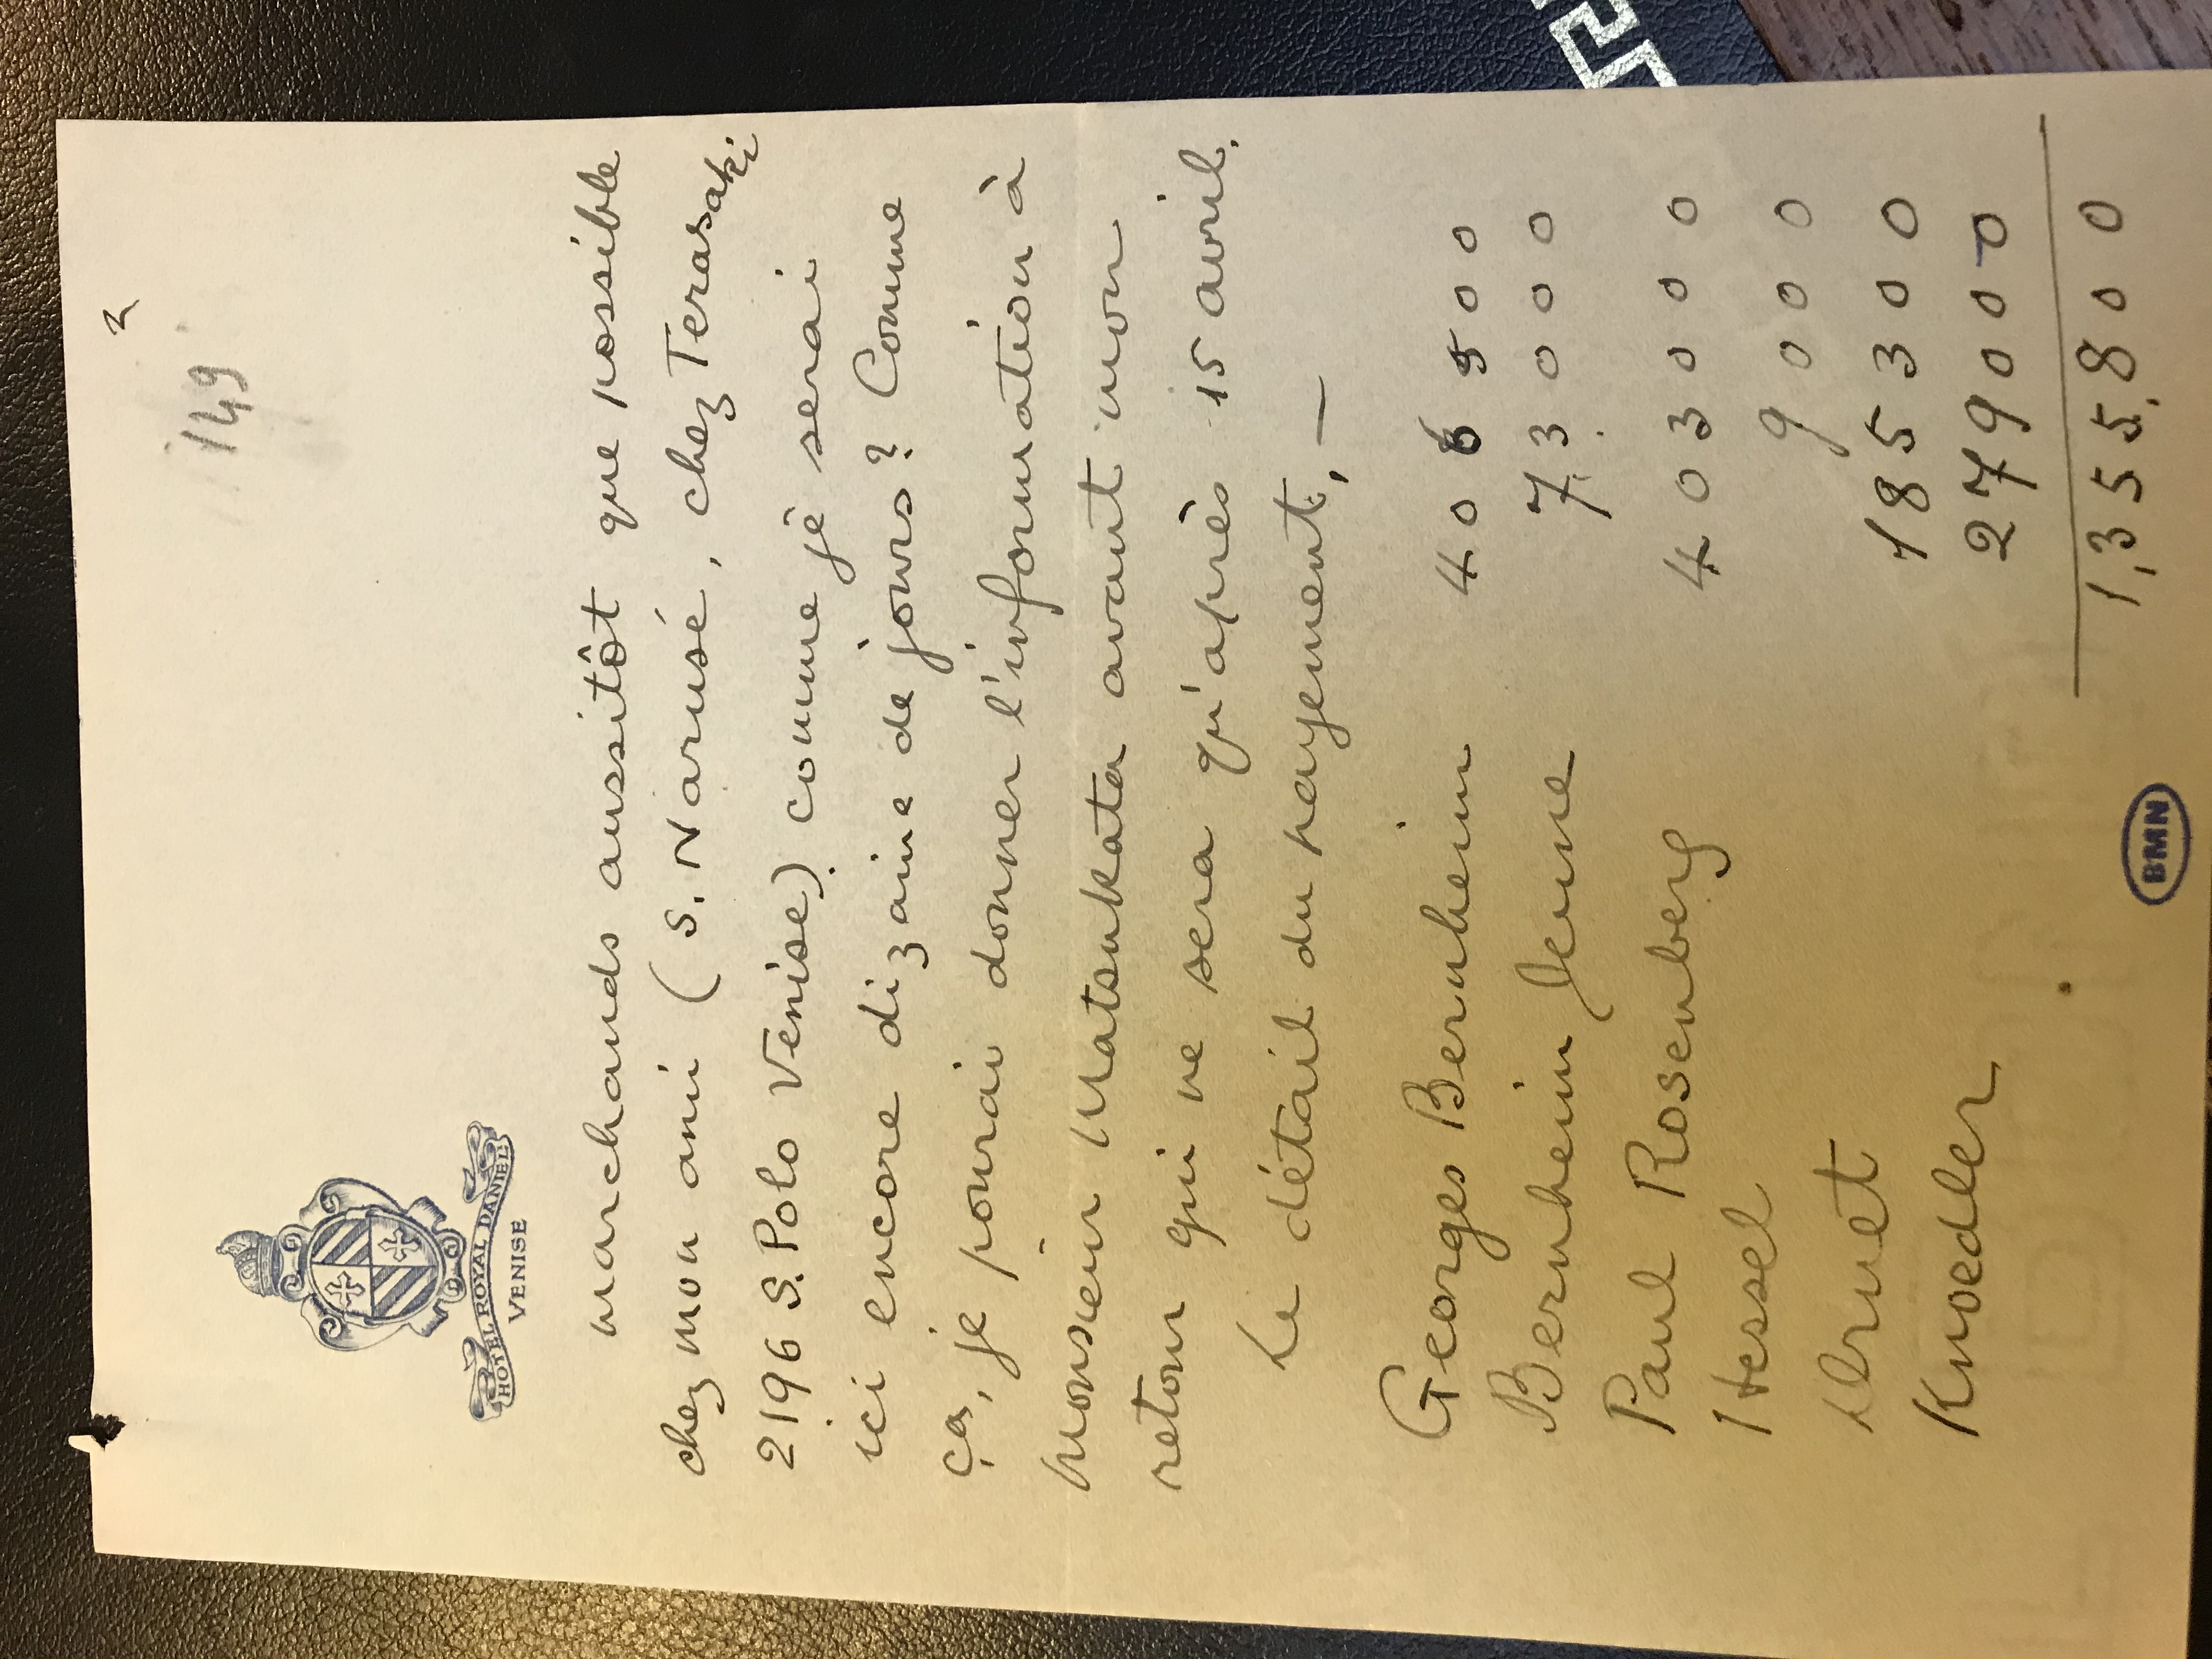 149
HOTEL ROYAL DANIELI
VENISE
marchands aussitôt que possible
chez mon ami (S. Narusé, chez Terasaki
2196 S. Polo Venise) comme je serai
ici encore dizaine de jours? Comme
ça, je pourai donner l'information à
Monsieur Matsukata avant mon
retour qui ne sera qu'après 15 avril.
Le détail du payement, —
Georges Bernheim 406500
Bernheim Jeune 73000
Paul Rosenberg 403000
Hessel 9000
Druet 185300
Knoedler 279000
1,355.800
BMN